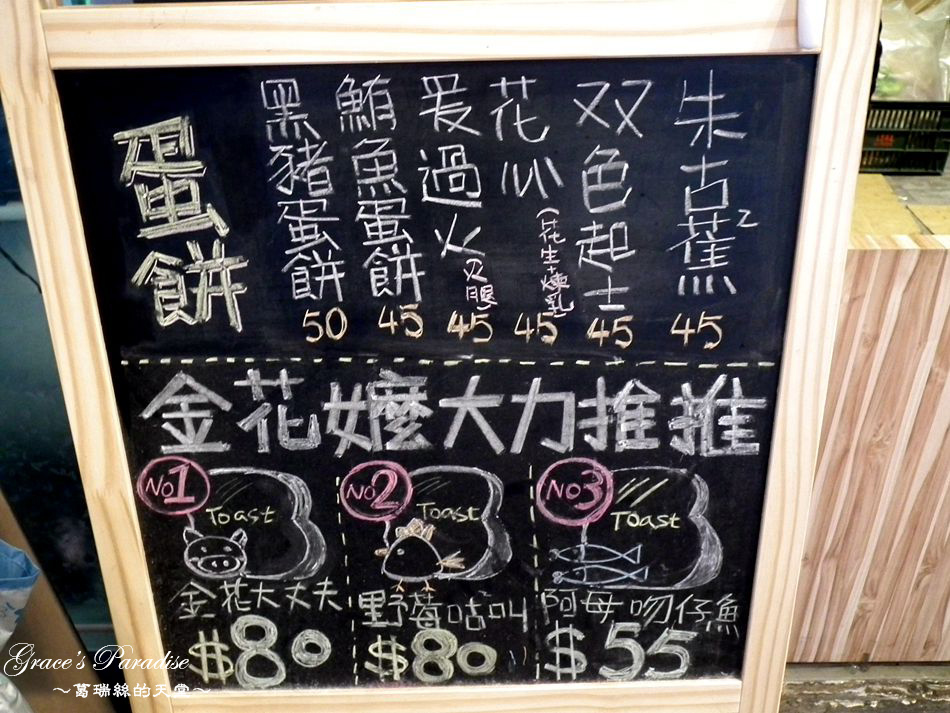 蛋餅
黑豬蛋餅 50
鮪魚蛋餅 45
爰過火 火腿 45
花心(花生+煉乳) 45
双色起士 45
朱古蕉2 45
金花嬤大力推推
NO1 Toast
金花大丈夫
$80
NO2 Toast
野莓咕叫
$80
NO3 Toast
阿母吻仔魚
$55
Grace's Paradise
~葛瑞絲的天堂~